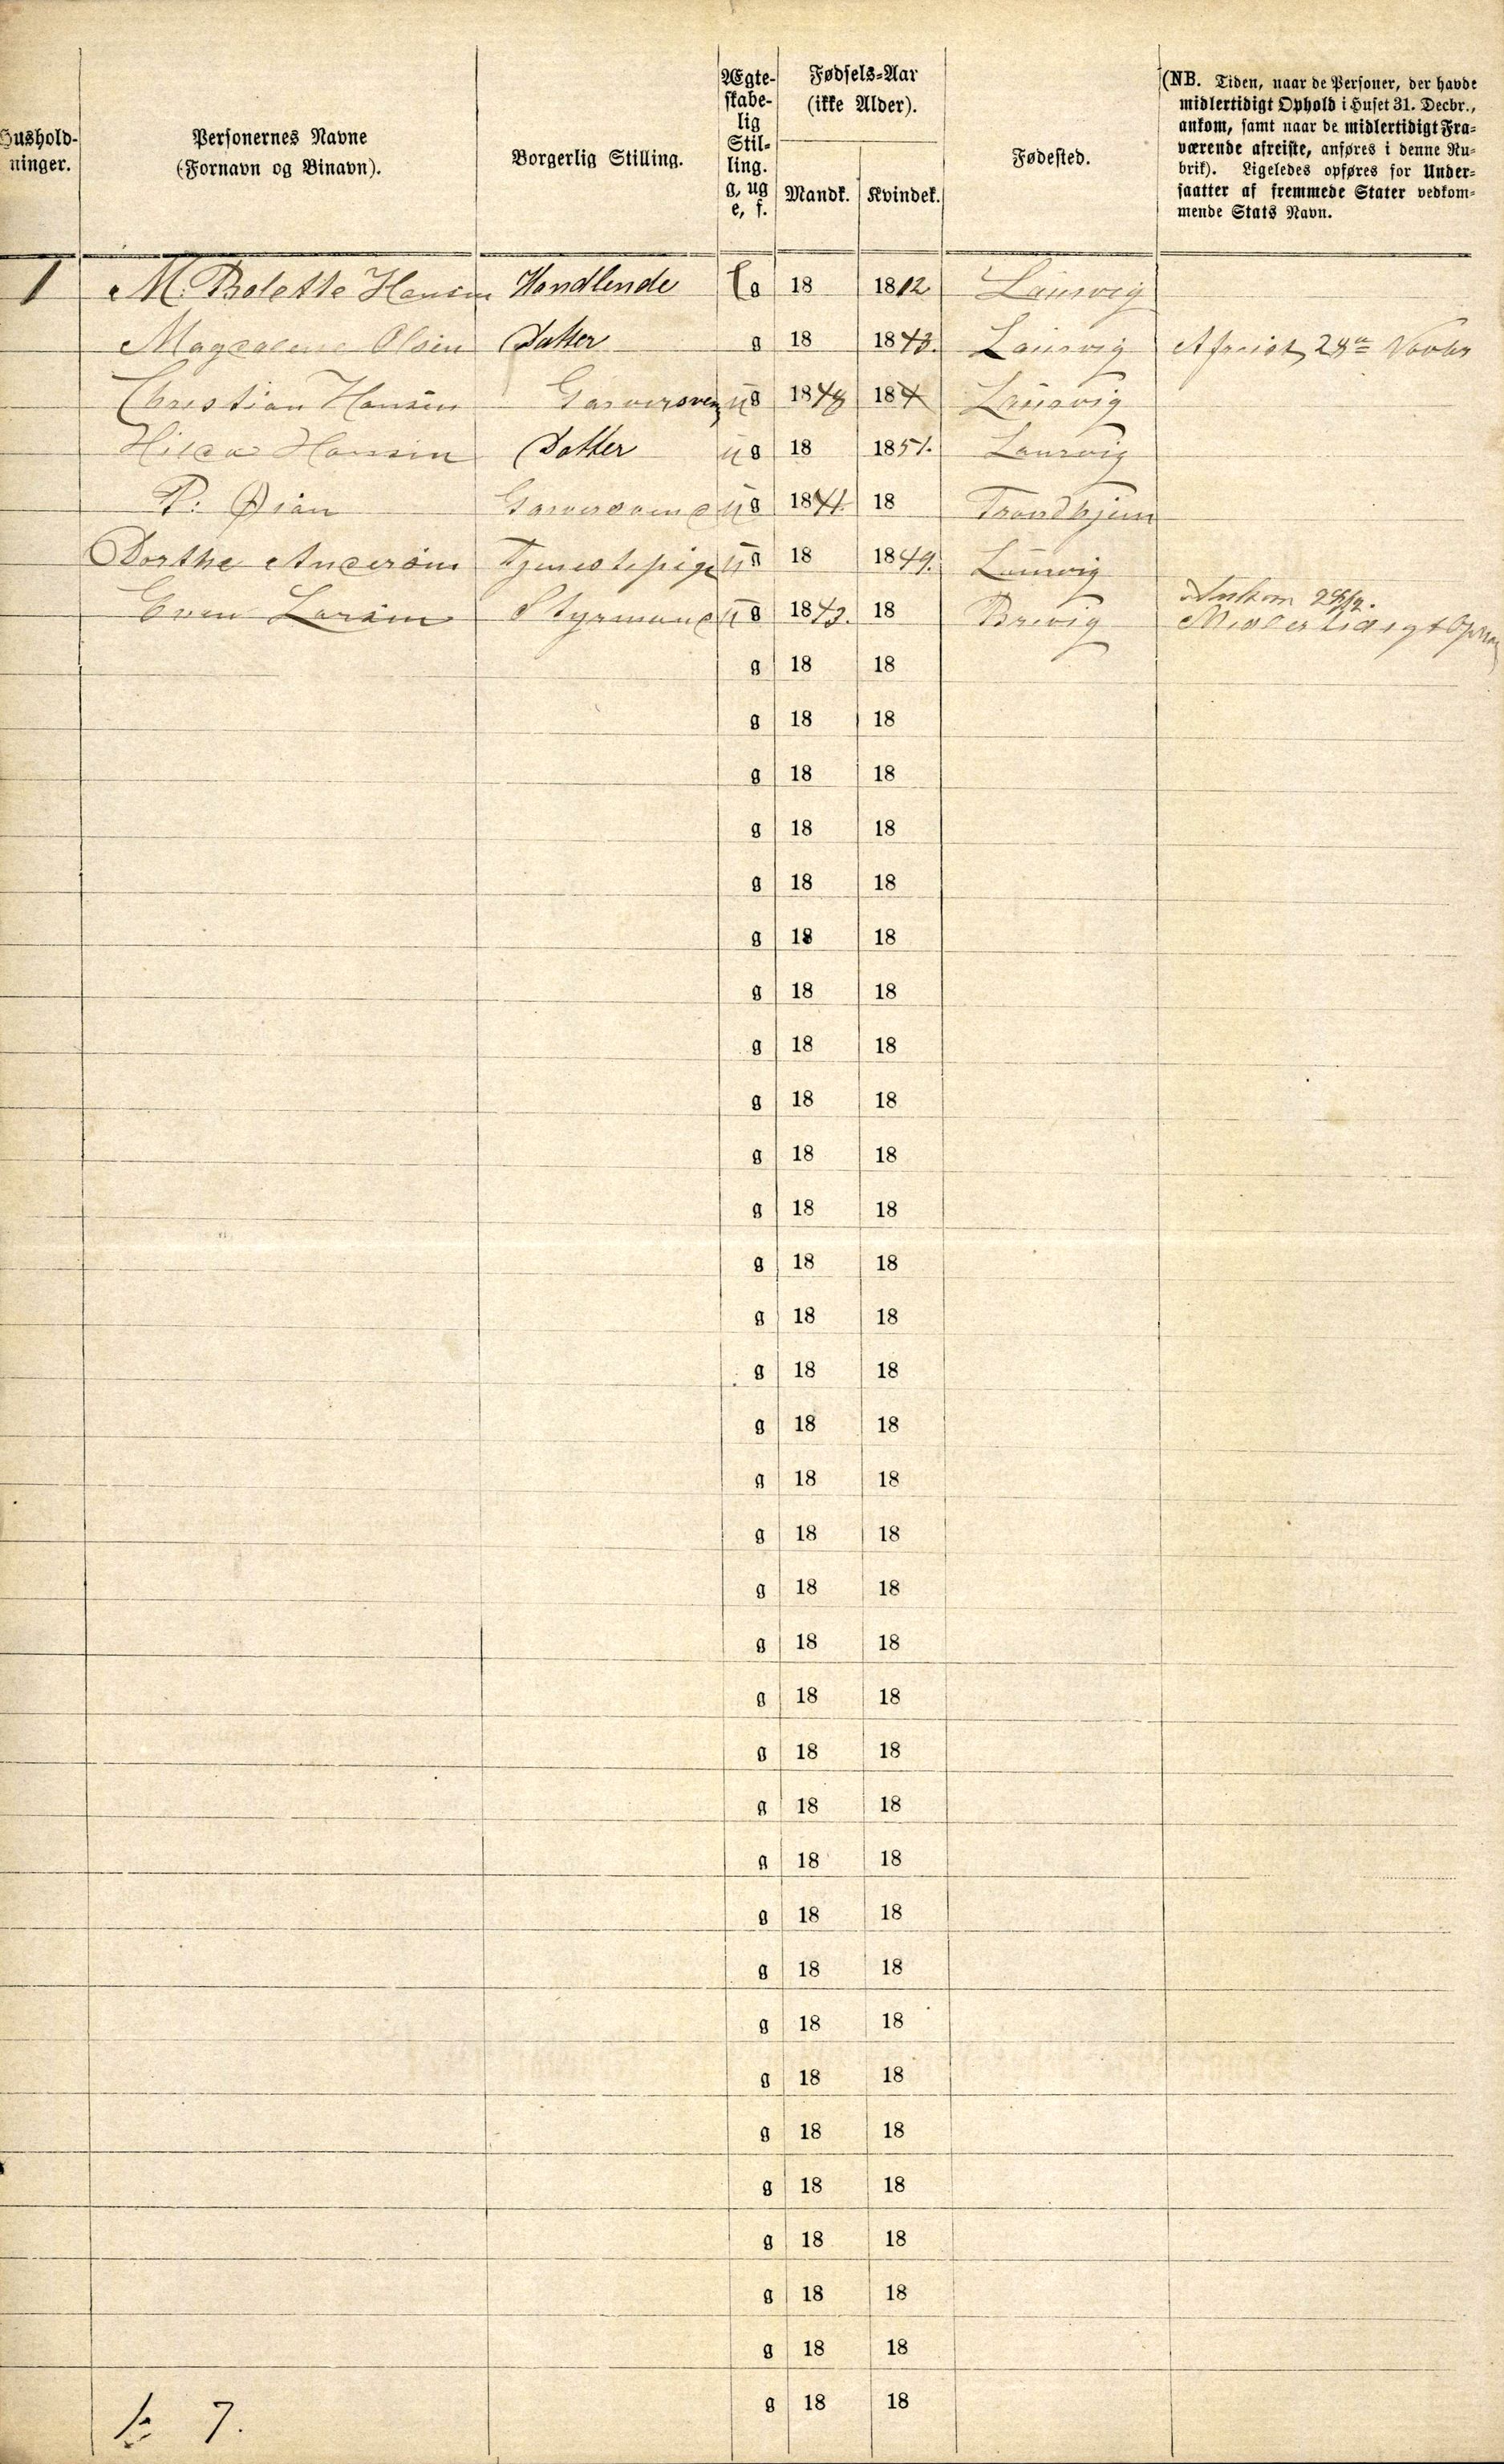 Hushold-
ninger.
Personernes Navne
(Fornavn og Binavn).
Borgerlig Stilling.
Ægte-
skabe-
lig
Stil-
ling.
g, ug
e, f.
Fødsels-Aar
(ikke Alder).
Mandk. Kvindek.
Fødested.
(NB. Tiden, naar de Personer, der havde
midlertidigt Ophold i Huset 31. Decbr.,
ankom, samt naar de midlertidigt Fra-
værende afreiste, anføres i denne Ru-
brik). Ligeledes opføres for Under-
saatter af fremmede Stater vedkom-
mende Stats Navn.
1 M. Bolette Hansen Handlende e g 18 1812 Laurvig
Magdalene Olsen Datter g 18 1843. Laurvig Afreist 28de Novbr
Christian Hansen Garversvend ug 1848 184 Laurvig
Hilda Hansen Datter ug 18 1851. Laurvig
P. Øian Garversvend ug 1841. 18 Trondhjem
Dorthe Andersen Tjenestepige ug 18 1849. Laurvig
Ankom
Even Larsen Styrmand ug 1843. 18 Brevig Midlertidigt Ophold
g 18 18
g 18 18
g 18 18
g 18 18
g 18 18
g 18 18
g 18 18
g 18 18
g 18 18
g 18 18
g 18 18
g 18 18
g 18 18
g 18 18
g 18 18
g 18 18
g 18 18
g 18 18
g 18 18
g 18 18
g 18 18
g 18 18
g 18 18
g 18 18
g 18 18
g 18 18
g 18 18
g 18 18
g 18 18
g 18 18
g 18 18
g 18 18
g 18 18
7.